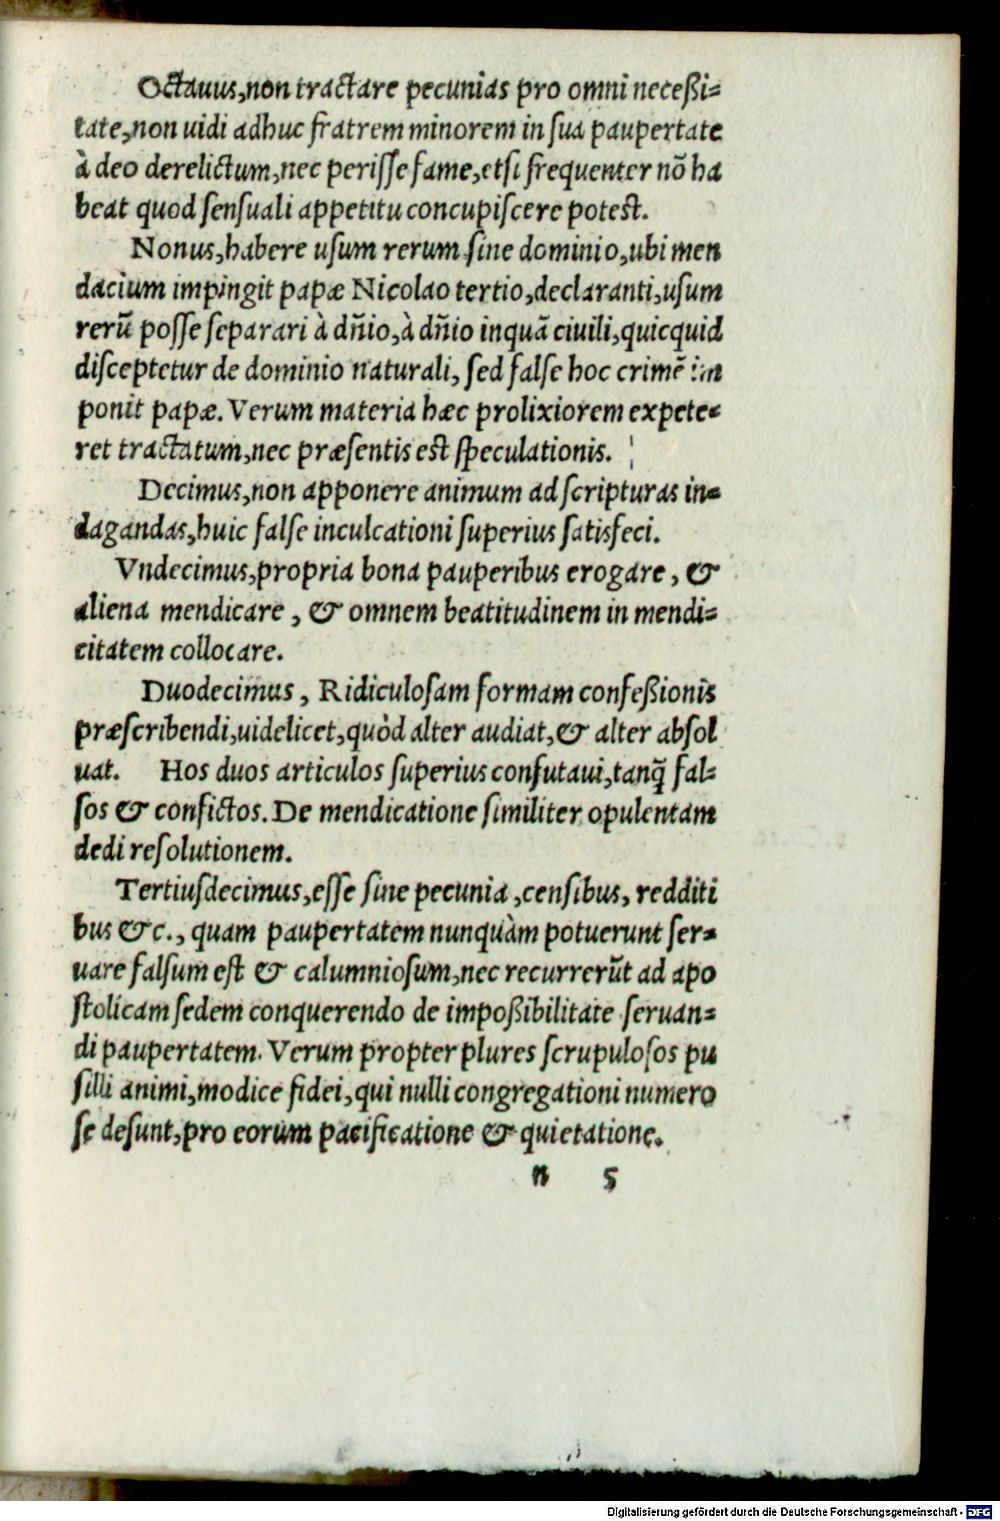 Octauus, non tractare pecunias pro omni neceßi-
tate, non uidi adhuc fratrem minorem in sua paupertate
à deo derelictum, nec perisse fame, etsi frequenter nõ ha
beat quod sensuali appetitu concupiscere potest.
Nonus, habere usum rerum sine dominio, ubi men
dacium impingit papæ Nicolao tertio, declaranti, usum
rerũ posse separari à dñio, à dñio inquã ciuili, quicquid
disceptetur de dominio naturali, sed false hoc crimẽ im
ponit papæ. Verum materia hæc prolixiorem expete-
ret tractatum, nec præsentis est speculationis.
Decimus, non apponere animum ad scripturas in-
dagandas, huic false inculcationi superius satisfeci.
Vndecimus, propria bona pauperibus erogare, &
aliena mendicare, & omnem beatitudinem in mendi-
citatem collocare.
Duodecimus, Ridiculosam formam confeßionis
præscribendi, uidelicet, quòd alter audiat, & alter absol
uat. Hos duos articulos superius confutaui, tanq̃ fal-
sos & confictos. De mendicatione similiter opulentam
dedi resolutionem.
Tertiusdecimus, esse sine pecunia, censibus, redditi
bus &c., quam paupertatem nunquàm potuerunt ser-
uare falsum est & calumniosum, nec recurrerũt ad apo
stolicam sedem conquerendo de impoßibilitate seruan-
di paupertatem. Verum propter plures scrupulosos pu
silli animi, modice fidei, qui nulli congregationi numero
se desunt, pro eorum pacificatione & quietatione.
n 5
Digitalisierung gefördert durch die Deutsche Forschungsgemeinschaft - DFG